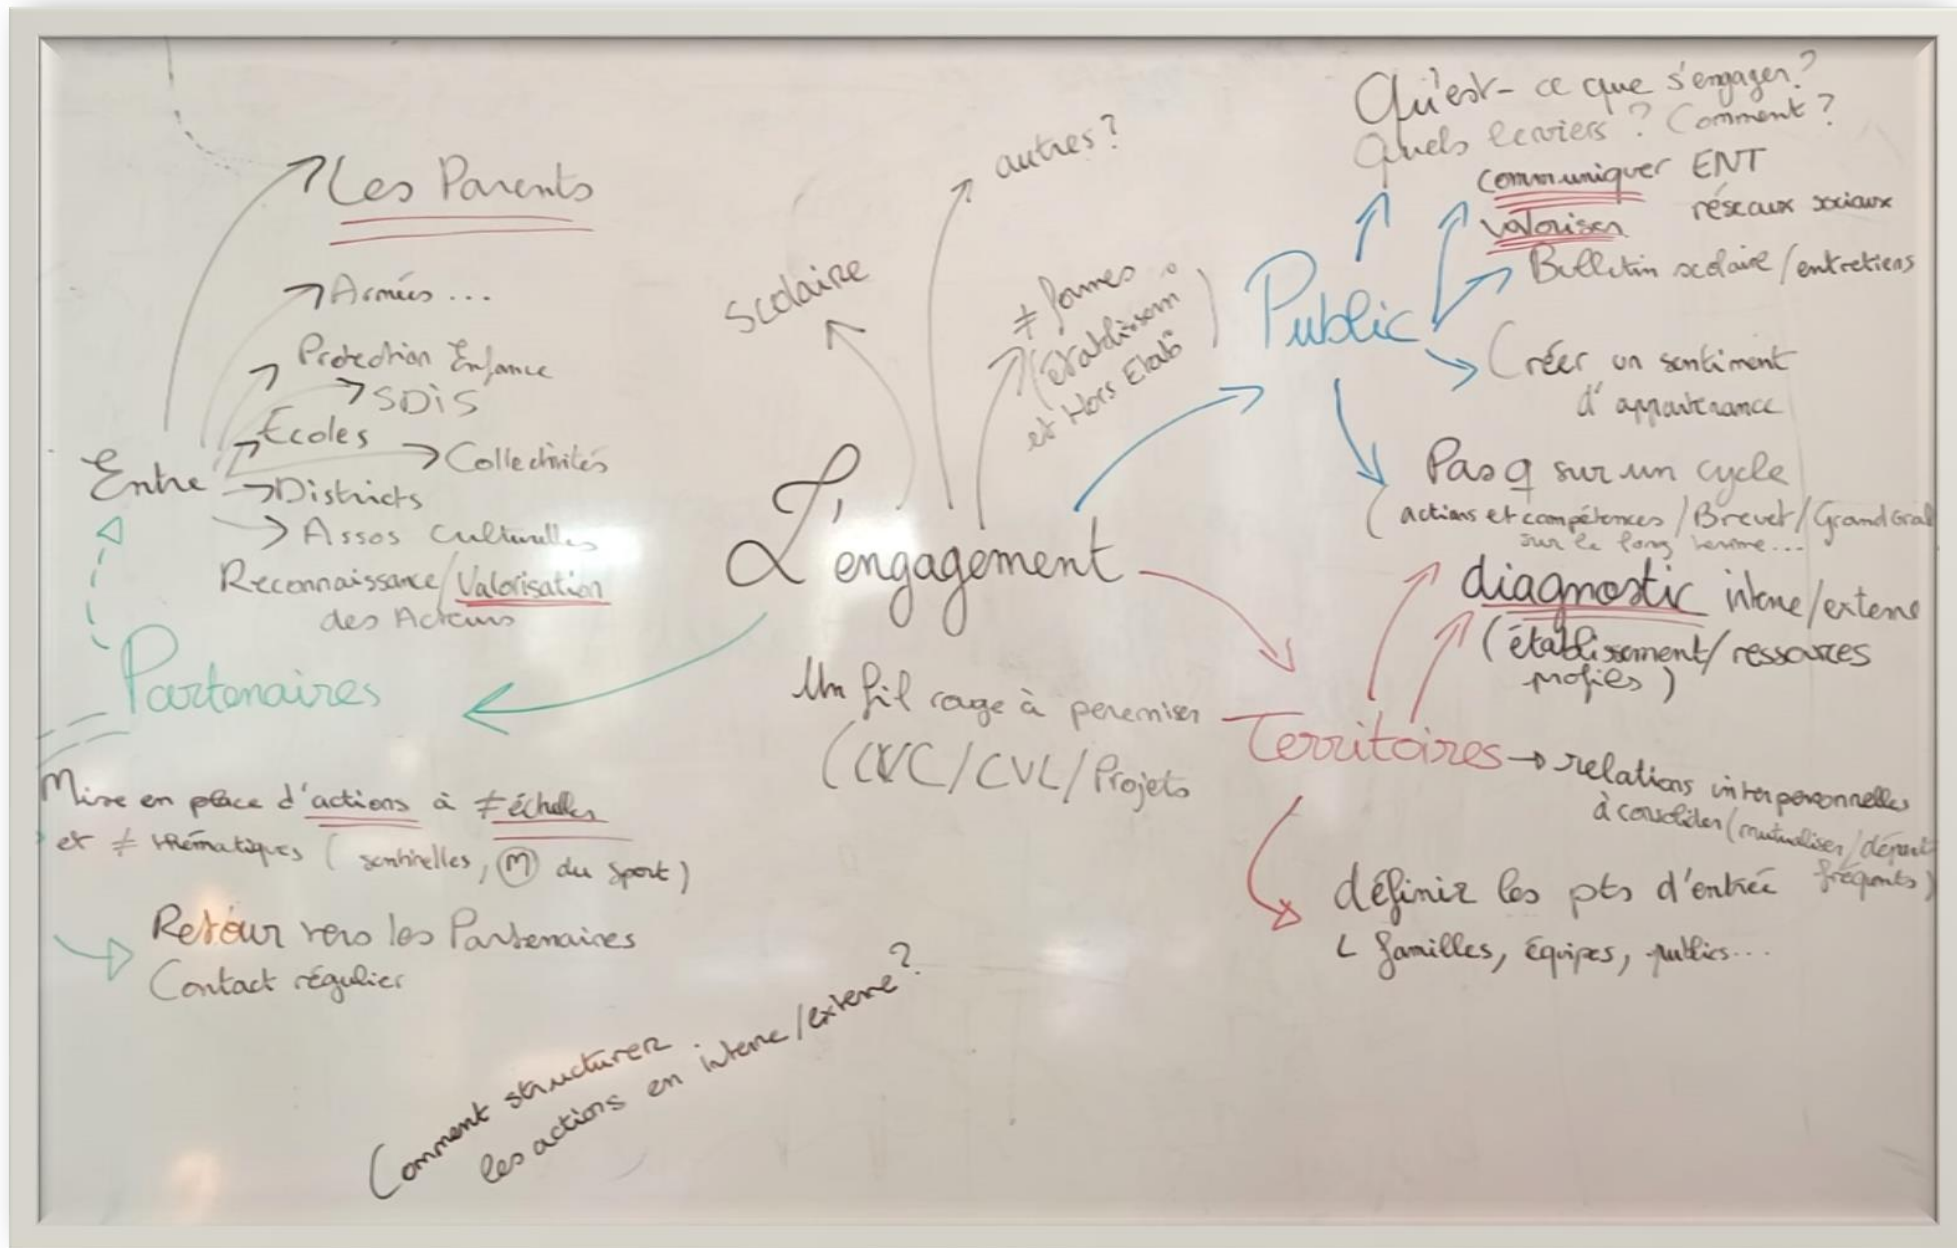 Les Parents
Armées...
Protection Enfance
SDIS
Écoles
Collectivités
Entre
Districts
Assos Culturelles
Reconnaissance/Valorisation
des Acteurs
Partenaires
Mise en place d'actions à ≠ échelles
et ≠ thématiques ( sentinelles, M du Sport)
Retour vers les Partenaires
Contact régulier
Comment structurer
les actions en interne/externe?
scolaire
autres?
≠ formes
(établissem
et Hors Etab
L'engagement
Un fil rouge à pereniser
(CVC/CVL/Projets
Public
Qu'est-ce que s'engager?
Quels leviers? Comment?
communiquer ENT
réseaux sociaux
Valoriser
Bulletin scolaire/entretiens
Créer un sentiment
d'appartenance
Pas q sur un cycle
(actions et compétences/Brevet/Grand Oral
sur le long terme...
diagnostic interne/externe
(établissement/ressources
profils)
Territoires
relations interpersonnelles
à consolider (mutualiser/départ
fréquents)
définir les pts d'entrée
familles, équipes, publics...